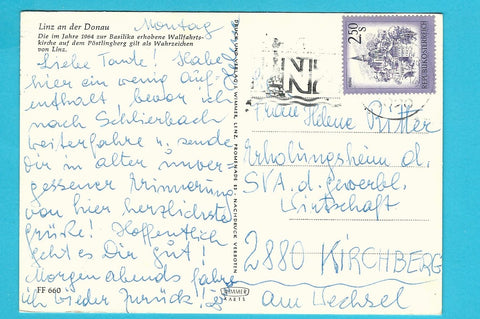 Linz an der Donau
Die im Jahre 1964 zur Basilika erhobene Wallfahrts-
kirche auf dem Pöstlingberg gilt als Wahrzeichen
von Linz.
Montag
Liebe Tante! Habe
hier ein wenig Auf-
enthalt bevor ich
nach Schlierbach
weiterfahre u. sende
Dir in alter unver-
gessener Erinnerung
von hier herzlichste
Grüße! Hoffentlich
geht es Dir gut!
Morgen abends fahre
ich wieder zurück!
FF 660
WIMMER, LINZ, PROMENADE 23 NACHDRUCK VERBOTEN
WIMMER
KARTE
LINZ
2.50 S
REPUBLIK ÖSTERREICH
Frau Helene Ritter
Erholungsheim d.
SVA. d. gewerbl.
Wirtschaft
2880 KIRCHBERG
am Wechsel